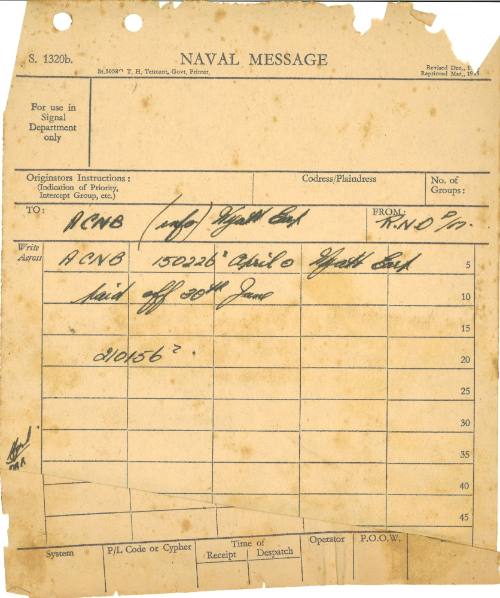 S. 1320b.
NAVAL MESSAGE
T. H. Tennant, Govt. Printer.
Revised Dec.,
Reprinted Mar.,
For use in
Signal
Department
only
Originators Instructions:
(Indication of Priority,
Intercept Group, etc.)
Codress/Plaindress
No. of
Groups:
TO:
ACNB (info) Wyatt Earp
FROM:
R.N.O P/M.
Write
Across
ACNB 150226z April Wyatt Earp
5
paid off 30th June
10
15
210156z.
20
25
30
35
40
45
System
P/L Code or Cypher
Time of
Receipt
Despatch
Operator
P.O.O.W.